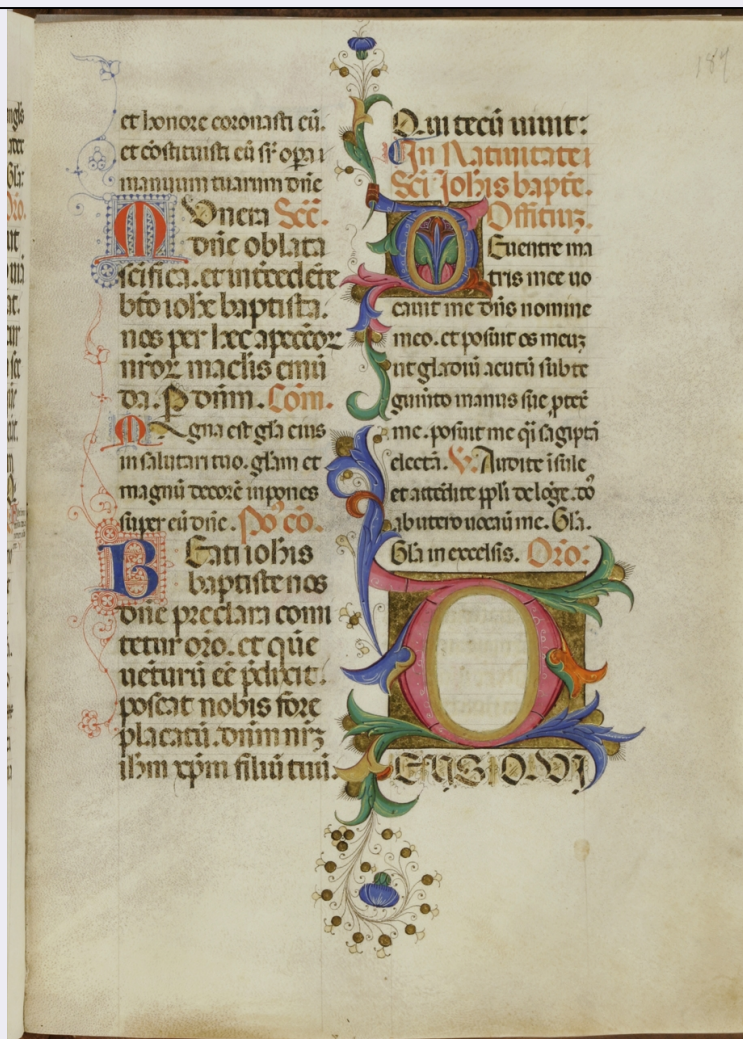 et honore coronasti eū.
et cōstituisti eū sr̄ opa i
manuum tuarum dn̄e
Munera Sec̄.
dn̄e oblata
sc̄ifica. et intercedēte
bt̄o ioh̄e baptista.
nos per hec a pcc̄or
nr̄or maclis emū
da. P dn̄m. Com̄.
Magna est gl̄a eius
in salutari tuo. gl̄am et
magnū decorē inpones
super eū dn̄e. Po' cō.
Beati ioh̄is
baptiste nos
dn̄e preclara comi
tetur or̄o. et quē
uēturū eē p̄dixit.
poscat nobis fore
placatū. dn̄m nr̄ꝫ
ih̄m xp̄m filiū tuū.
Q. in tecū uiuit:
In Natiuitate
Sc̄i Ioh̄is bapt̄e.
Offitiuꝫ.
De uentre ma
tris mee uo
cauit me dn̄s nomine
meo. et posuit os meuꝫ
ut gladiū acutū subte
gumto manus sue ptex̄
me. posuit me q̄i sagiptā
electā. V Audite īsule
et attēdite ppl̄i de lōge. dō
ab utero uocauit me. Gl̄a.
Gl̄a in excelsis. Or̄o:
DEUS. Q. VI
189